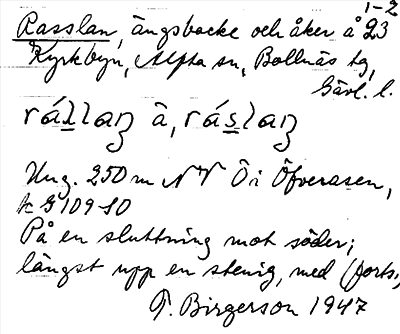 1-2
Rasslan, ängsbacke och åker å 23
Kyrkbyn, Alfta sn, Bollnäs tg,
Gävl. l.
Ung. 250 m NNV Ö i Öfverasen,
På en sluttning mot söder;
längst upp en stenig, med (forts.,
T. Birgerson 1947